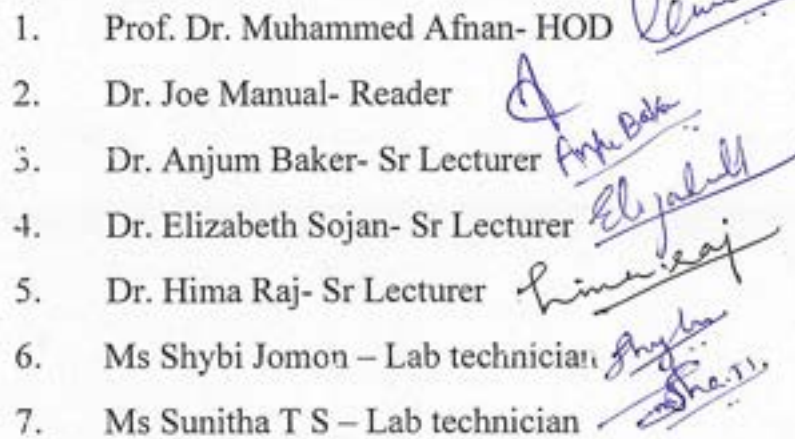 1. Prof. Dr. Muhammed Afnan- HOD
2. Dr. Joe Manual- Reader
3. Dr. Anjum Baker- Sr Lecturer
4. Dr. Elizabeth Sojan- Sr Lecturer Elizabeth
5. Dr. Hima Raj- Sr Lecturer hima raj
6. Ms Shybi Jomon – Lab technician
7. Ms Sunitha T S – Lab technician